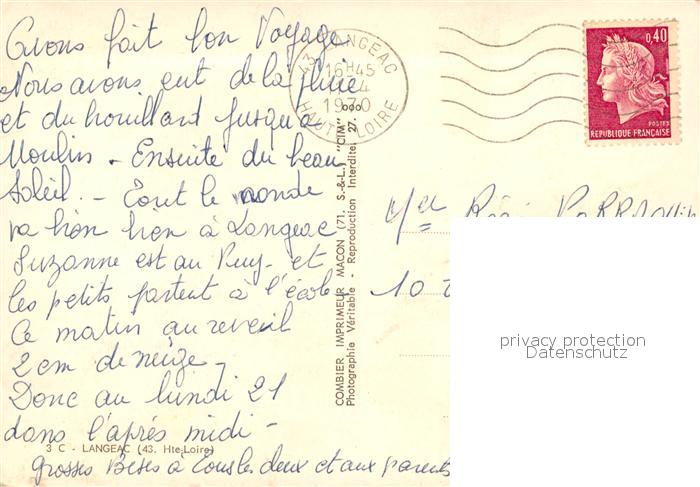 Avons fait bon Voyage
Nous avons eut de la pluie
et du brouillard jusqu'à
Moulin - Ensuite du beau
Soleil - Tout le monde
va bien bien à Langeac
Suzanne est au Puy - et
les petits partent à l'école
Ce matin au reveil
2 cm de neige -
Donc au lundi 21
dans l'après midi -
Grosses Bises à tous les deux et aux parents
3 C - LANGEAC (43. Hte-Loire)
COMBIER IMPRIMEUR MACON (71. S.-&-L.) "CIM"
Photographie Véritable - Reproduction Interdite 27.
43 LANGEAC
16H45
4
1970
HAUTE LOIRE
0,40
POSTES
REPUBLIQUE FRANÇAISE
10
privacy protection
Datenschutz